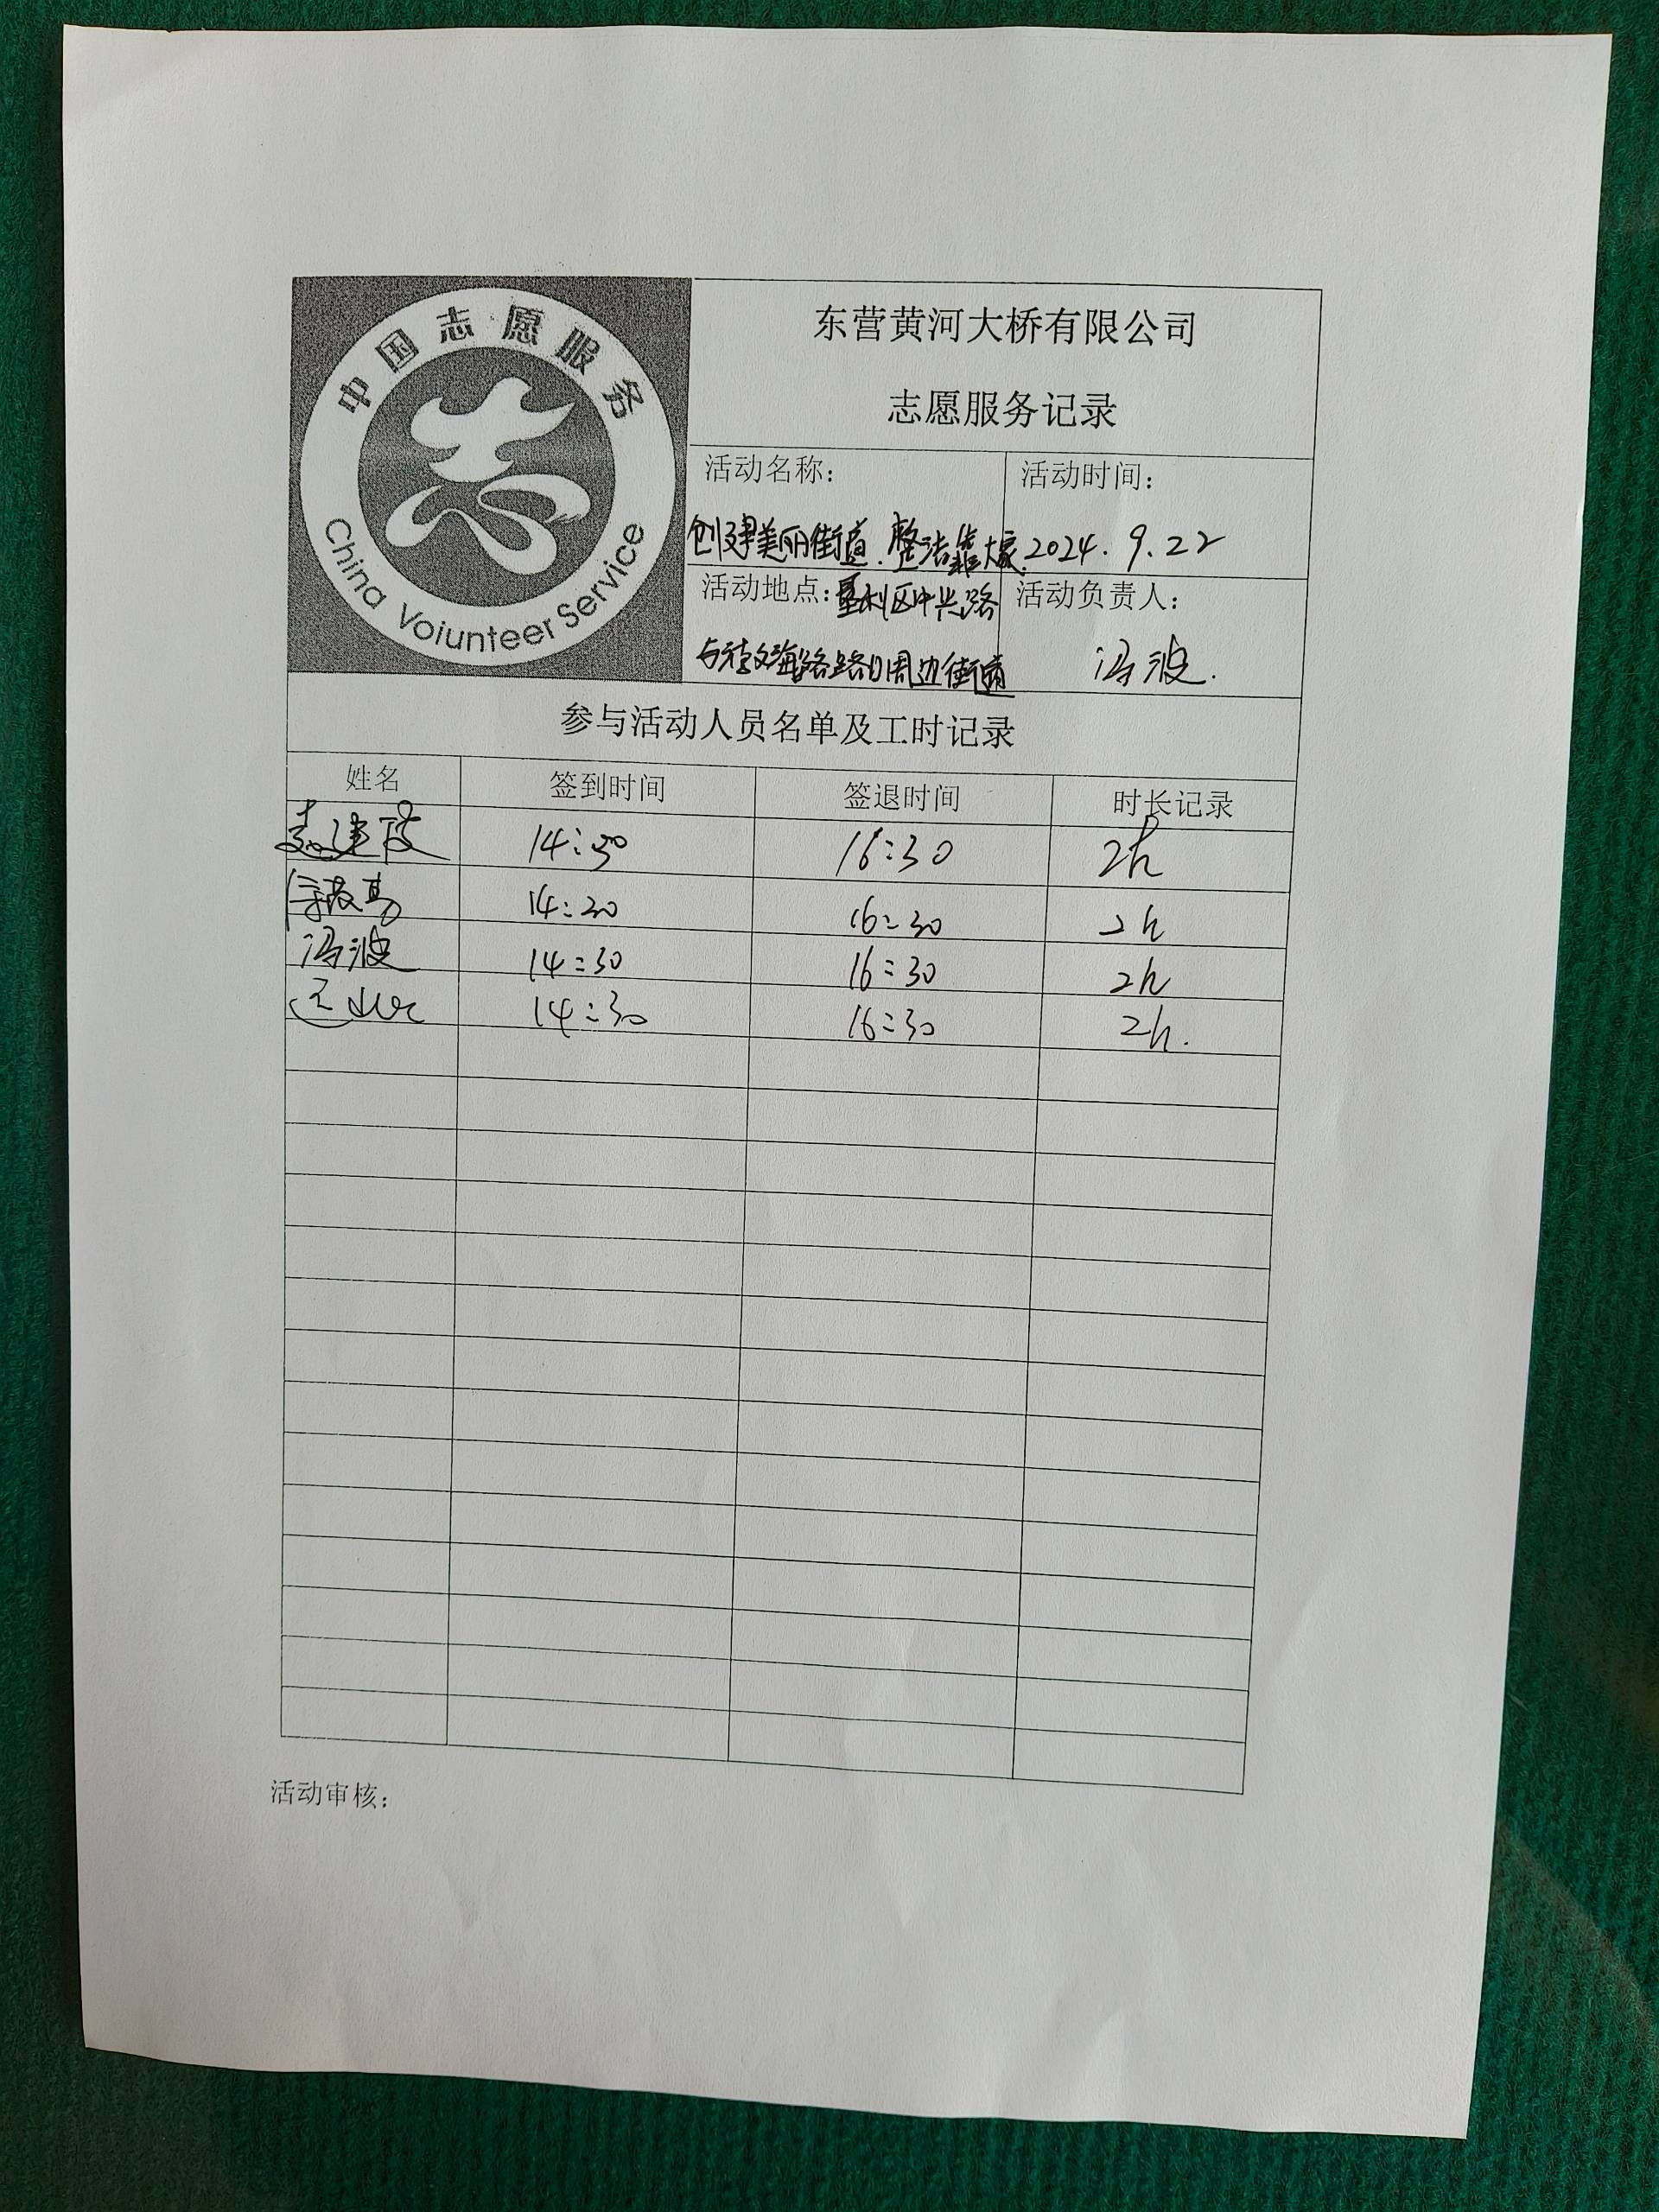 中国志愿服务
China Voiunteer Service
东营黄河大桥有限公司
志愿服务记录
活动名称：
创建美丽街道.整洁靠大家.
活动时间：
2024.9.22
活动地点：垦利区中兴路
与 路路口周边街道
活动负责人：
冯波.
参与活动人员名单及工时记录
姓名 签到时间 签退时间 时长记录
14:30 16:30 2h
14:30 16:30 2h
冯波 14:30 16:30 2h
14:30 16:30 2h.
活动审核：